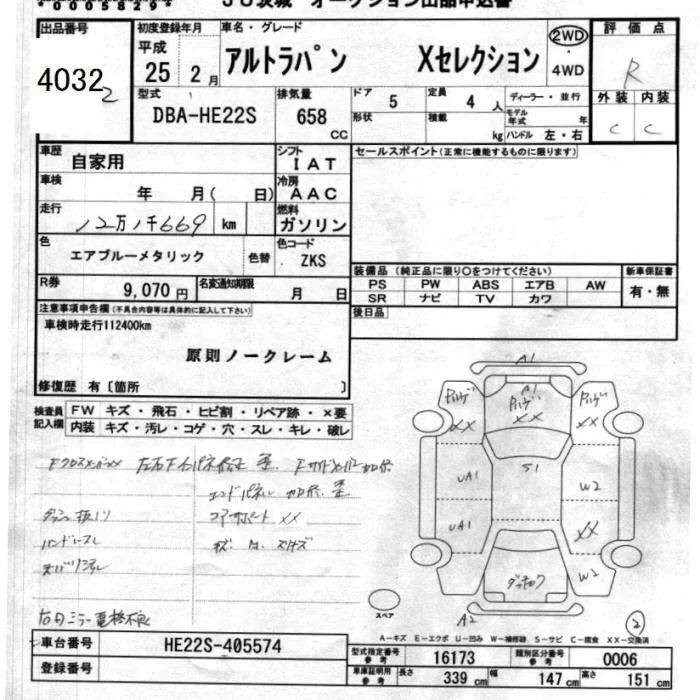 *00058209*
JU茨城 オークション出品申込書
出品番号 初度登録年月 車名・グレード 2WD・4WD 評価点
4032 2
平成 25年 2月 アルトラパン Xセレクション R
型式 DBA-HE22S 排気量 658 CC
ドア 5 定員 4人 ディーラー・並行 外装 内装
形状 積載 kg モデル年式 年 C C
ハンドル 左・右
車歴 自家用 シフト IAT セールスポイント(正常に機能するものに限ります)
車検 年 月( 日) 冷房 AAC
走行 12万1千669 km 燃料 ガソリン
色 エアブルーメタリック 色替 色コード ZKS
装備品 (純正品に限り○をつけてください) 新車保証書
R券 9,070円 名変通知期限 月 日
PS PW ABS エアB AW 有・無
SR ナビ TV カワ
注意事項申告欄(不具合内容等は具体的に記入して下さい) 後日品
車検時走行112400km
原則ノークレーム
修復歴 有〔箇所 〕
検査員記入欄 FW キズ・飛石・ヒビ割・リペア跡・×要
内装 キズ・汚レ・コゲ・穴・スレ・キレ・破レ
FクロスメンバーXX
エンドパネル
コアサポート XX
ハンドルスレ
右ミラー電格不良
A1
A1
XX
XX
XX
UA1
S1
W2
UA1
XX
W2
スペア
A2
2
A-キズ E-エクボ U-凹み W-補修跡 S-サビ C-腐食 XX-交換済
車台番号 HE22S-405574
型式指定番号 参考 16173 類別区分番号 参考 0006
登録番号
車庫証明用 参考 長さ 339 cm 幅 147 cm 高さ 151 cm